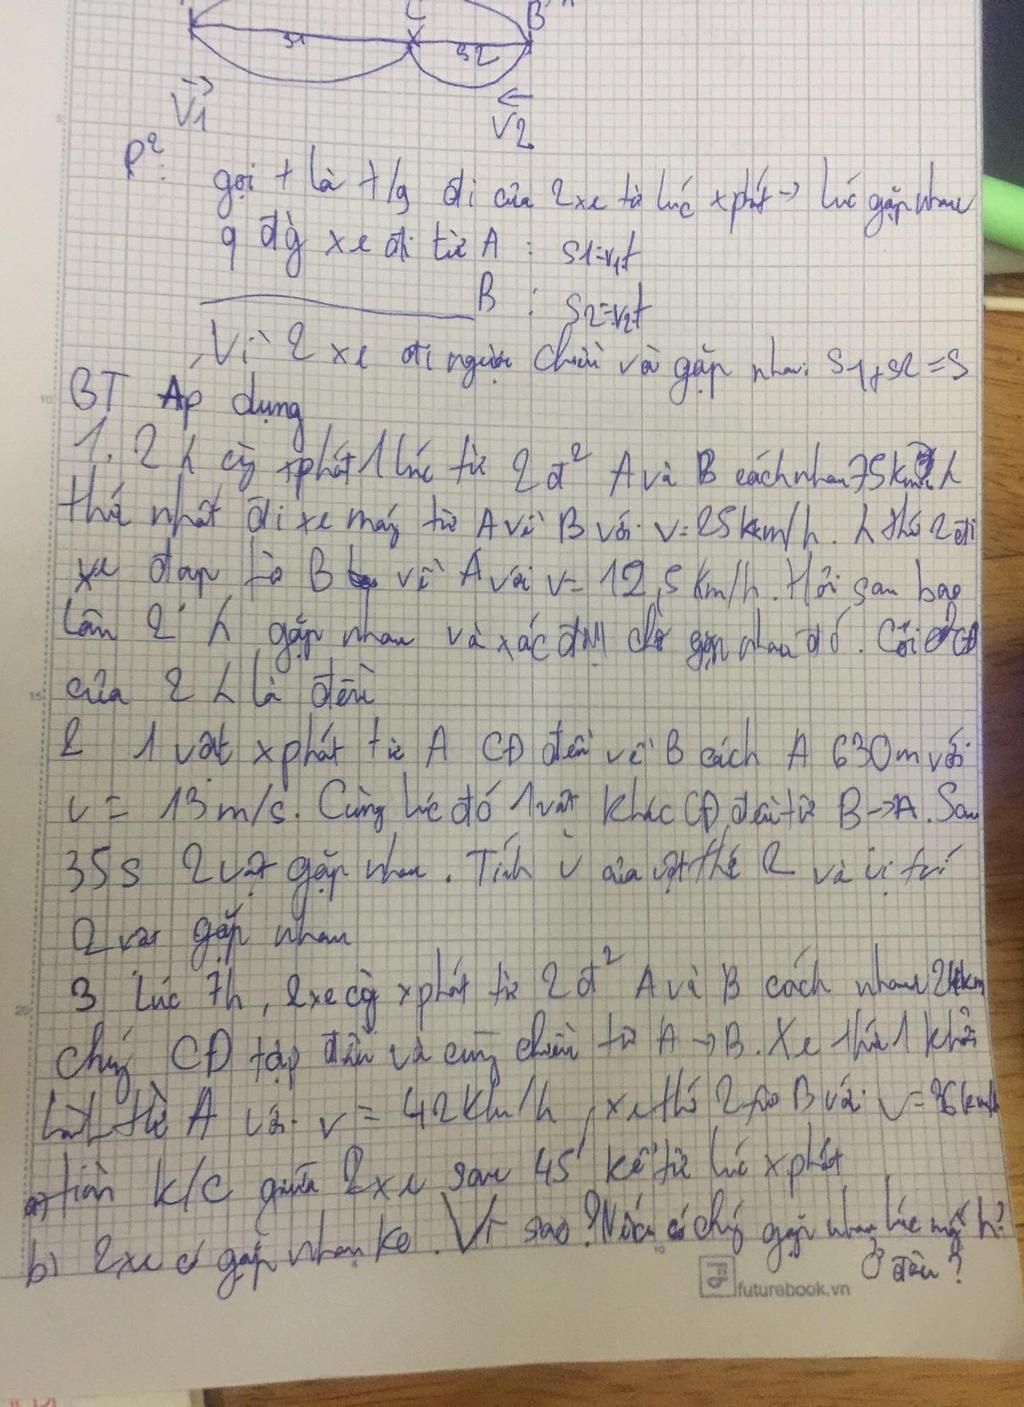 C
B
S1
S2
V1
V2
P²:
gọi t là t/g đi của 2 xe từ lúc xphát → lúc gặp nhau
q đg xe đi từ A : S1=v1t
B : S2=v2t
Vì 2 xe đi ngược chiều và gặp nhau: S1+S2=S
BT Áp dụng
1. 2 h cg xphát 1 lúc từ 2 đ² A và B cách nhau 75km. h
thứ nhất đi xe máy từ A về B với v=25km/h. h thứ 2 đi
xe đạp từ B về A với v= 12,5 km/h. Hỏi sau bao
lâu 2 h gặp nhau và xác định chỗ gặp nhau đó. Coi CĐ
của 2 h là đều
2 1 vật xphát từ A CĐ đều về B cách A 630m với
v= 13m/s. Cùng lúc đó 1 vật khác CĐ đều từ B→A. Sau
35s 2 vật gặp nhau. Tính v của vật thứ 2 và vị trí
2 vật gặp nhau
3 Lúc 7h, 2xe cg xphát từ 2 đ² A và B cách nhau 24km
chúng CĐ đều và cùng chiều từ A→B. Xe thứ 1 khởi
hành từ A với v= 42km/h, xe thứ 2 từ B với v=36km/h
a) tìm k/c giữa 2 xe sau 45' kể từ lúc xphát
b) 2xe có gặp nhau ko. Vì sao? Nếu có chúng gặp nhau lúc mấy h?
Ở đâu?
futurebook.vn